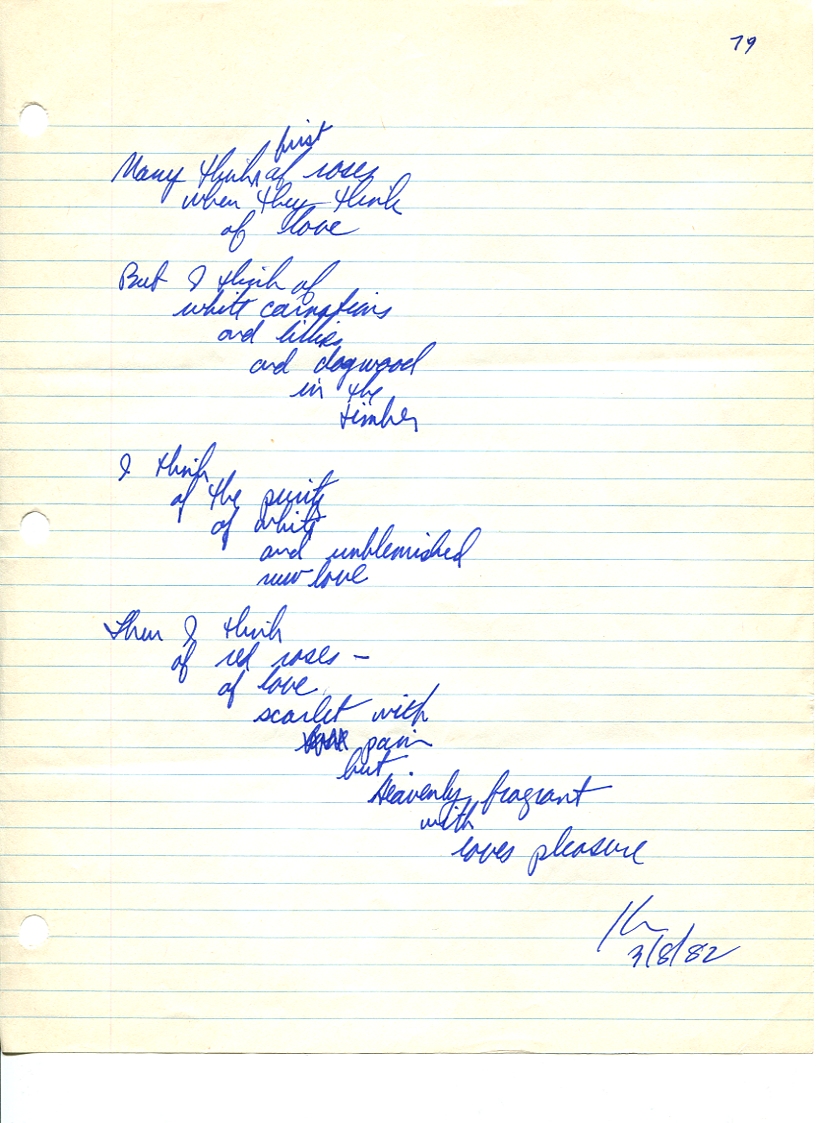 79
Many think first of roses
when they think
of love
But I think of
white carnations
and lillies
and dogwood
in the
timber
I think
of the purity
of white
and unblemished
new love
Then I think
of red roses –
of love
scarlet with
pain
but
Heavenly fragrant
with
loves pleasure
3/8/82